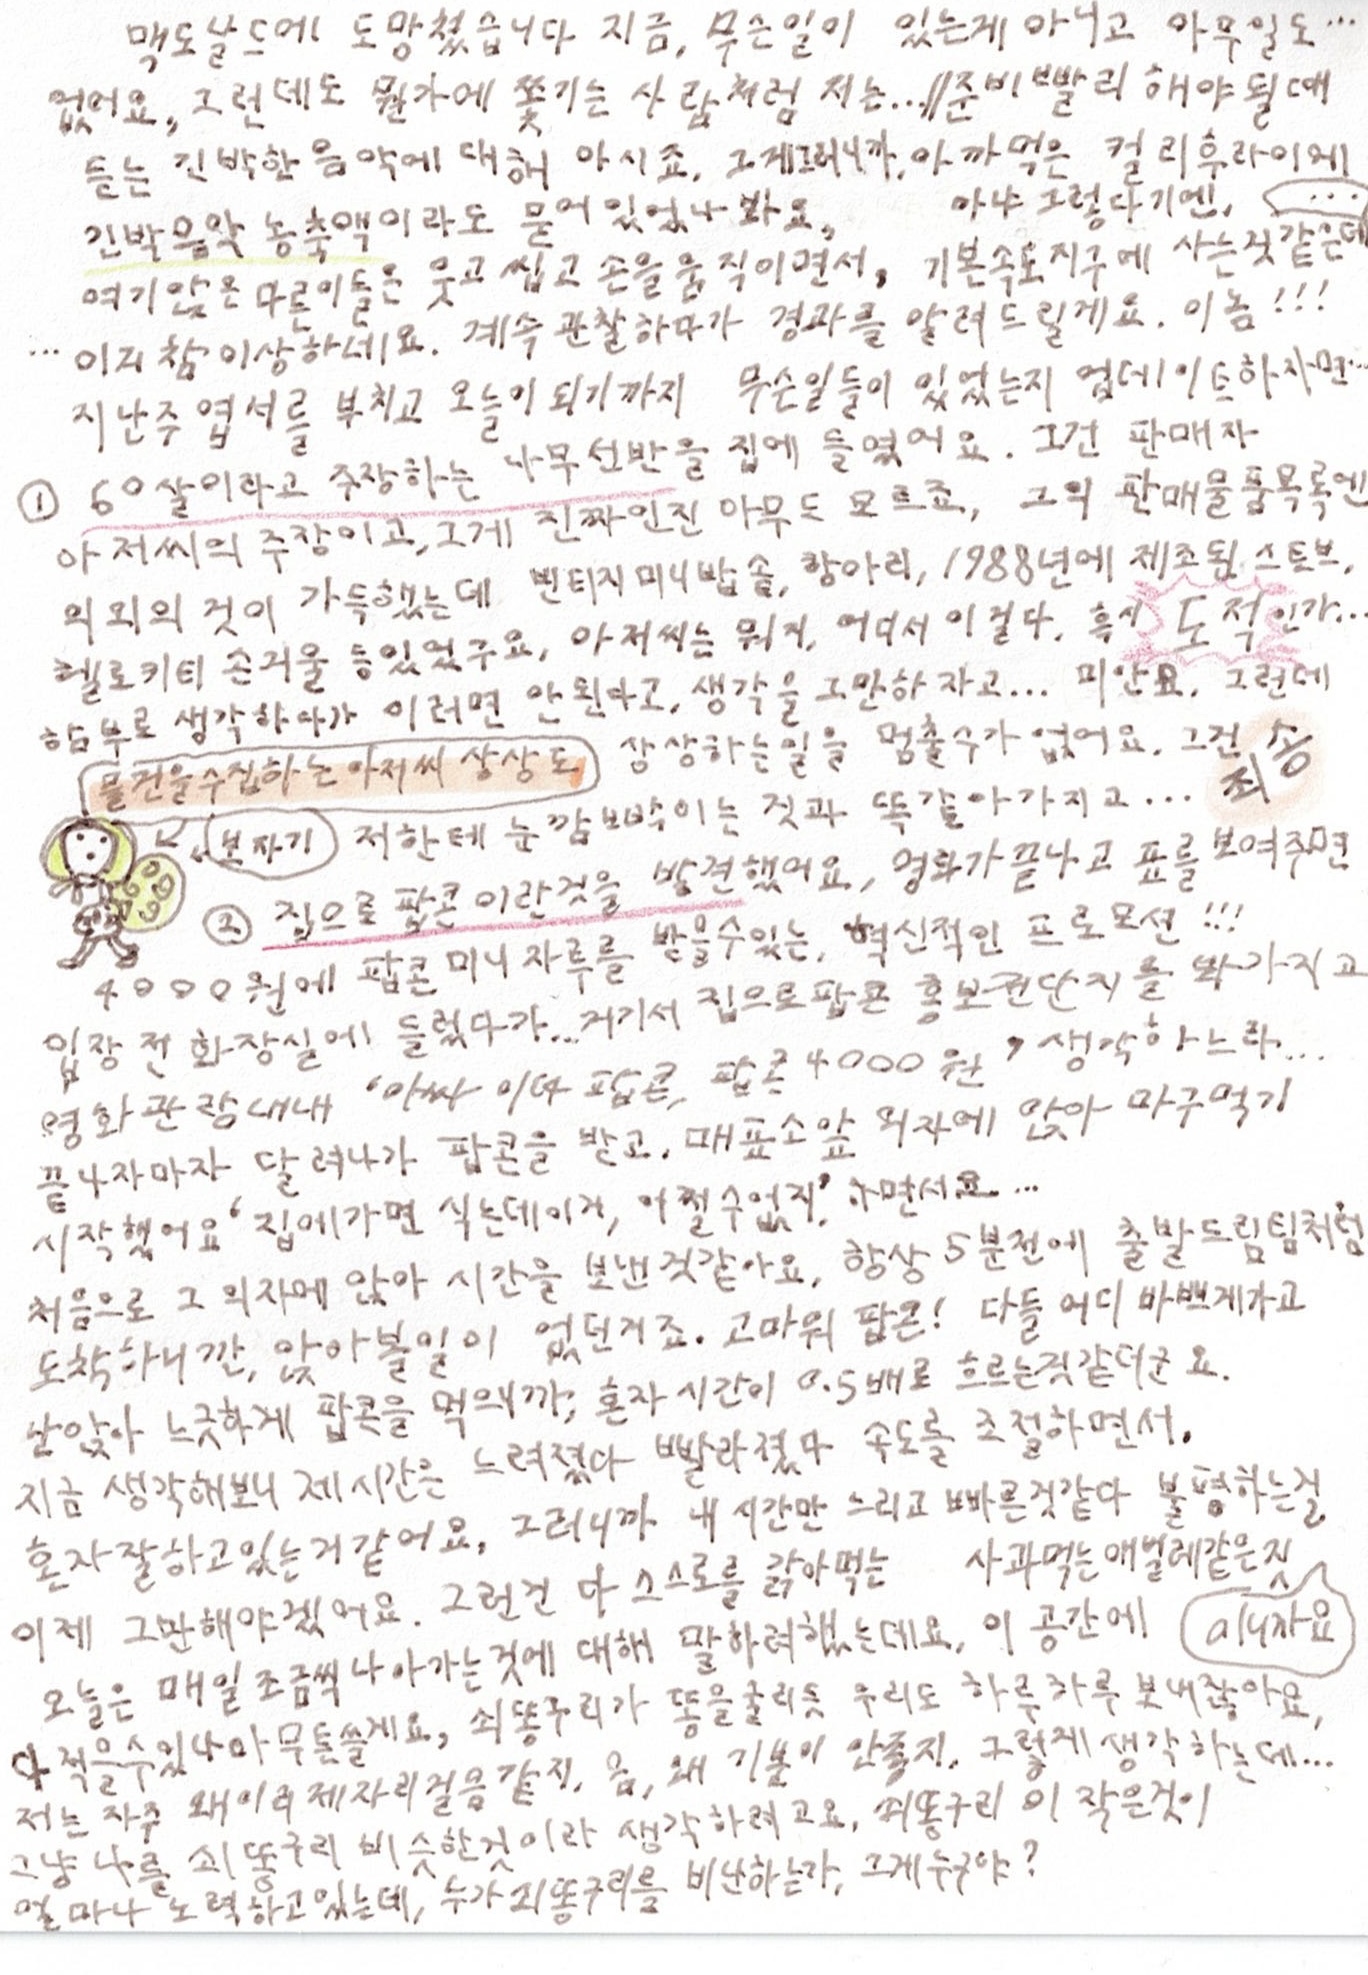 맥도날드에 도망쳤습니다 지금, 무슨일이 있는게 아니고 아무일도…
없어요, 그런데도 뭔가에 쫓기는 사람처럼 저는...//준비 빨리 해야될때
듣는 긴박한 음악에 대해 아시죠. 그게그러니까, 아까먹은 컬리후라이에
긴박음악 농축액이라도 묻어있었나 봐요, 아냐 그렇다기엔, ...
여기앉은 다른이들은 웃고 씹고 손을움직이면서, 기본속도지구에 사는것같은데
… 이거 참이상하네요. 계속 관찰하다가 경과를 알려드릴게요. 이놈!!!
지난주 엽서를 부치고 오늘이되기까지 무슨일들이 있었는지 업데이트하자면…
① 60살이라고 주장하는 나무선반을 집에 들였어요. 그건 판매자
아저씨의 주장이고, 그게 진짜인진 아무도 모르죠, 그의 판매물품목록엔
의외의 것이 가득했는데 빈티지미니밥솥, 항아리, 1988년에 제조된 스토브,
헬로키티 손거울 등있었구요, 아저씨는 뭐지, 어디서 이걸다. 혹시 도적인가...
함부로 생각하다가 이러면 안된다고, 생각을 그만하자고... 미안요. 그런데
물건을수집하는아저씨 상상도 상상하는일을 멈출수가 없어요. 그건 죄송
보자기 저한테 눈깜빡이는 것과 똑같아가지고...
② 집으로 팝콘이란것을 발견했어요, 영화가끝나고 표를 보여주면
4000원에 팝콘미니자루를 받을수있는, 혁신적인 프로모션!!!
입장전 화장실에 들렀다가...거기서 집으로팝콘 홍보전단지를 봐가지고
영화관람내내 '아싸 이따 팝콘, 팝콘4000원' 생각하느라...
끝나자마자 달려나가 팝콘을 받고. 매표소앞 의자에 앉아 마구먹기
시작했어요 '집에가면 식는데이거, 어쩔수없지' 하면서요...
처음으로 그 의자에 앉아 시간을 보낸것같아요, 항상 5분전에 출발드림팀처럼
도착하니깐, 앉아볼일이 없던거죠. 고마워 팝콘! 다들 어디 바쁘게가고
난앉아 느긋하게 팝콘을 먹으니까, 혼자시간이 0.5배로 흐르는것같더군요.
지금 생각해보니 제시간은 느려졌다 빨라졌다 속도를 조절하면서.
혼자잘하고있는거같어요, 그러니까 내 시간만 느리고 빠른것같다 불평하는걸
이제 그만해야겠어요. 그런건 다 스스로를 갉아먹는 사과먹는애벌레같은짓
오늘은 매일조금씩나아가는것에 대해 말하려했는데요, 이 공간에 아니자요
다 적을수있나아무튼쓸게요, 쇠똥구리가 똥을굴리듯 우리도 하루하루 보내잖아요,
저는 자주 왜이리제자리걸음같지, 음, 왜 기분이 안좋지. 그렇게생각하는데...
그냥 나를 쇠똥구리 비슷한것이라 생각하려고요, 쇠똥구리 이 작은것이
얼마나 노력하고있는데, 누가쇠똥구리를 비난하는가, 그게누구야?